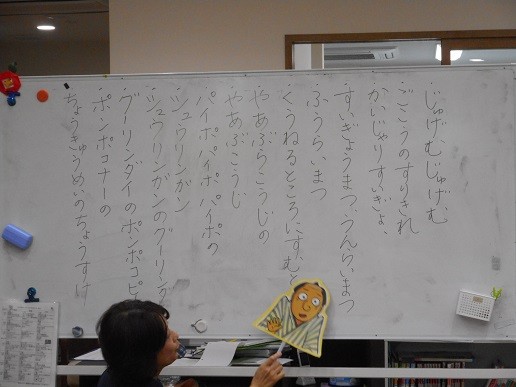 じゅげむじゅげむ
ごこうのすりきれ
かいじゃりすいぎょ
すいぎょうまつ、うんらいまつ
ふうらいまつ
くうねるところにすむ
やあぶらこうじの
やあぶこうじ
パイポパイポパイポの
シュウリンガン
シュウリンガンのグーリンダ
グーリンダイのポンポコピ
ポンポコナーの
ちょうきゅうめいのちょうすけ